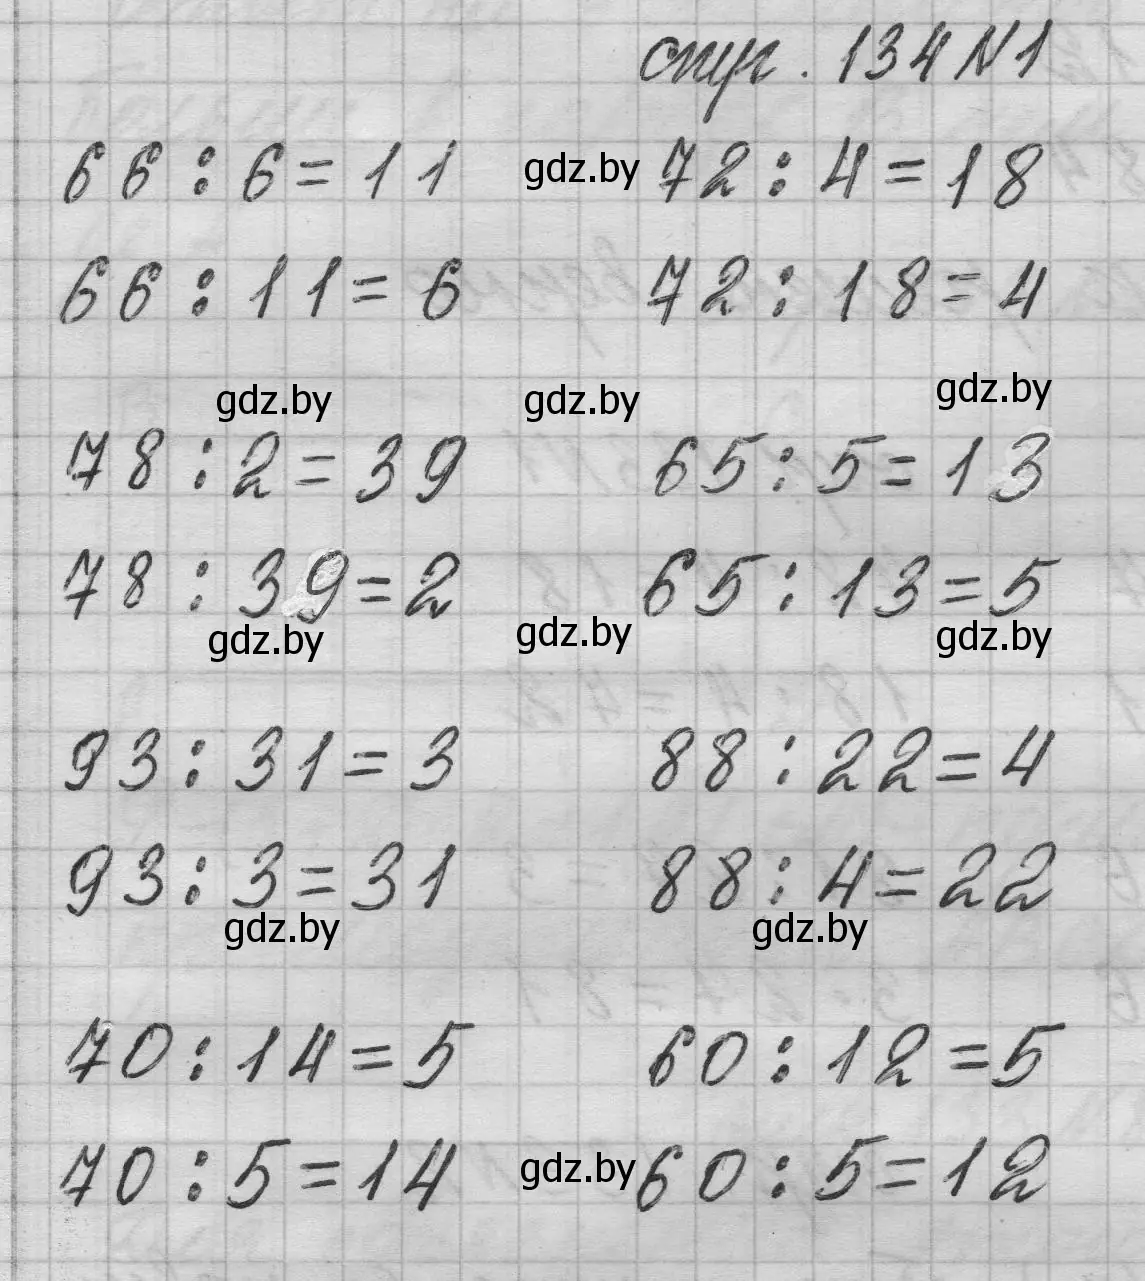 стр. 134 N1
66 : 6 = 11 gdz.by 72 : 4 = 18
66 : 11 = 6 72 : 18 = 4
gdz.by gdz.by gdz.by
78 : 2 = 39 65 : 5 = 13
78 : 39 = 2 65 : 13 = 5
gdz.by gdz.by gdz.by
93 : 31 = 3 88 : 22 = 4
93 : 3 = 31 88 : 4 = 22
gdz.by gdz.by
70 : 14 = 5 60 : 12 = 5
70 : 5 = 14 gdz.by 60 : 5 = 12